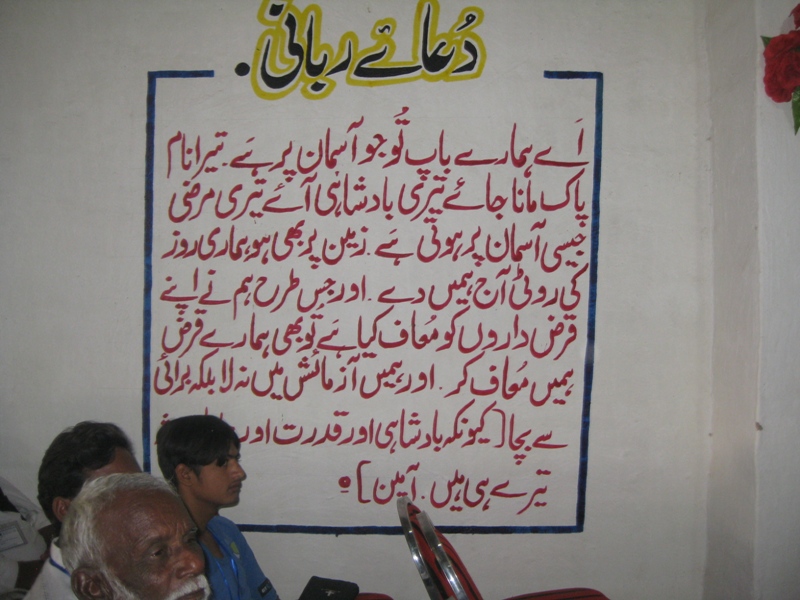 دُعائے ربانی.
اَے ہمارے باپ تُو جو آسمان پر ہَے. تیرا نام
پاک مانا جائے تیری بادشاہی آئے تیری مرضی
جیسی آسمان پر ہوتی ہَے. زمین پر بھی ہو ہماری روز
کی روٹی آج ہمیں دے. اور جس طرح ہم نے اپنے
قرض داروں کو مُعاف کیا ہَے تُو بھی ہمارے قرض
ہمیں مُعاف کر. اور ہمیں آزمائش میں نہ لا بلکہ بُرائی
سے بچا [کیونکہ بادشاہی اور قدرت اور
تیرے ہی ہیں. آمین]